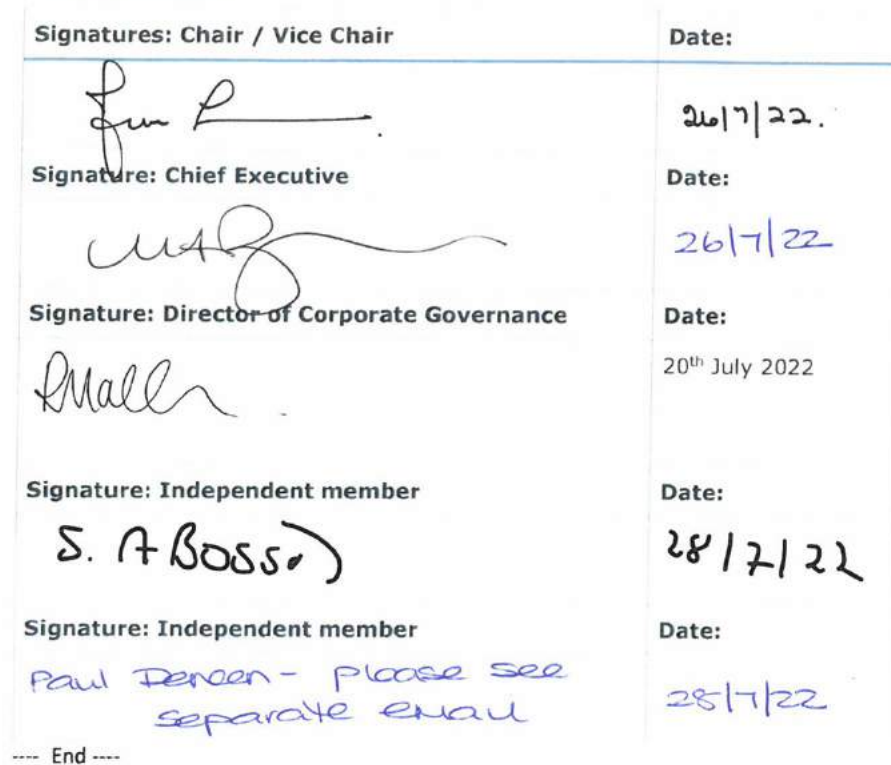 Signatures: Chair / Vice Chair Date:
26/7/22.
Signature: Chief Executive Date:
26/7/22
Signature: Director of Corporate Governance Date:
20th July 2022
Signature: Independent member Date:
S. A Bosson 28/7/22
Signature: Independent member Date:
Paul Deneen - please see
separate email 28/7/22
---- End ----